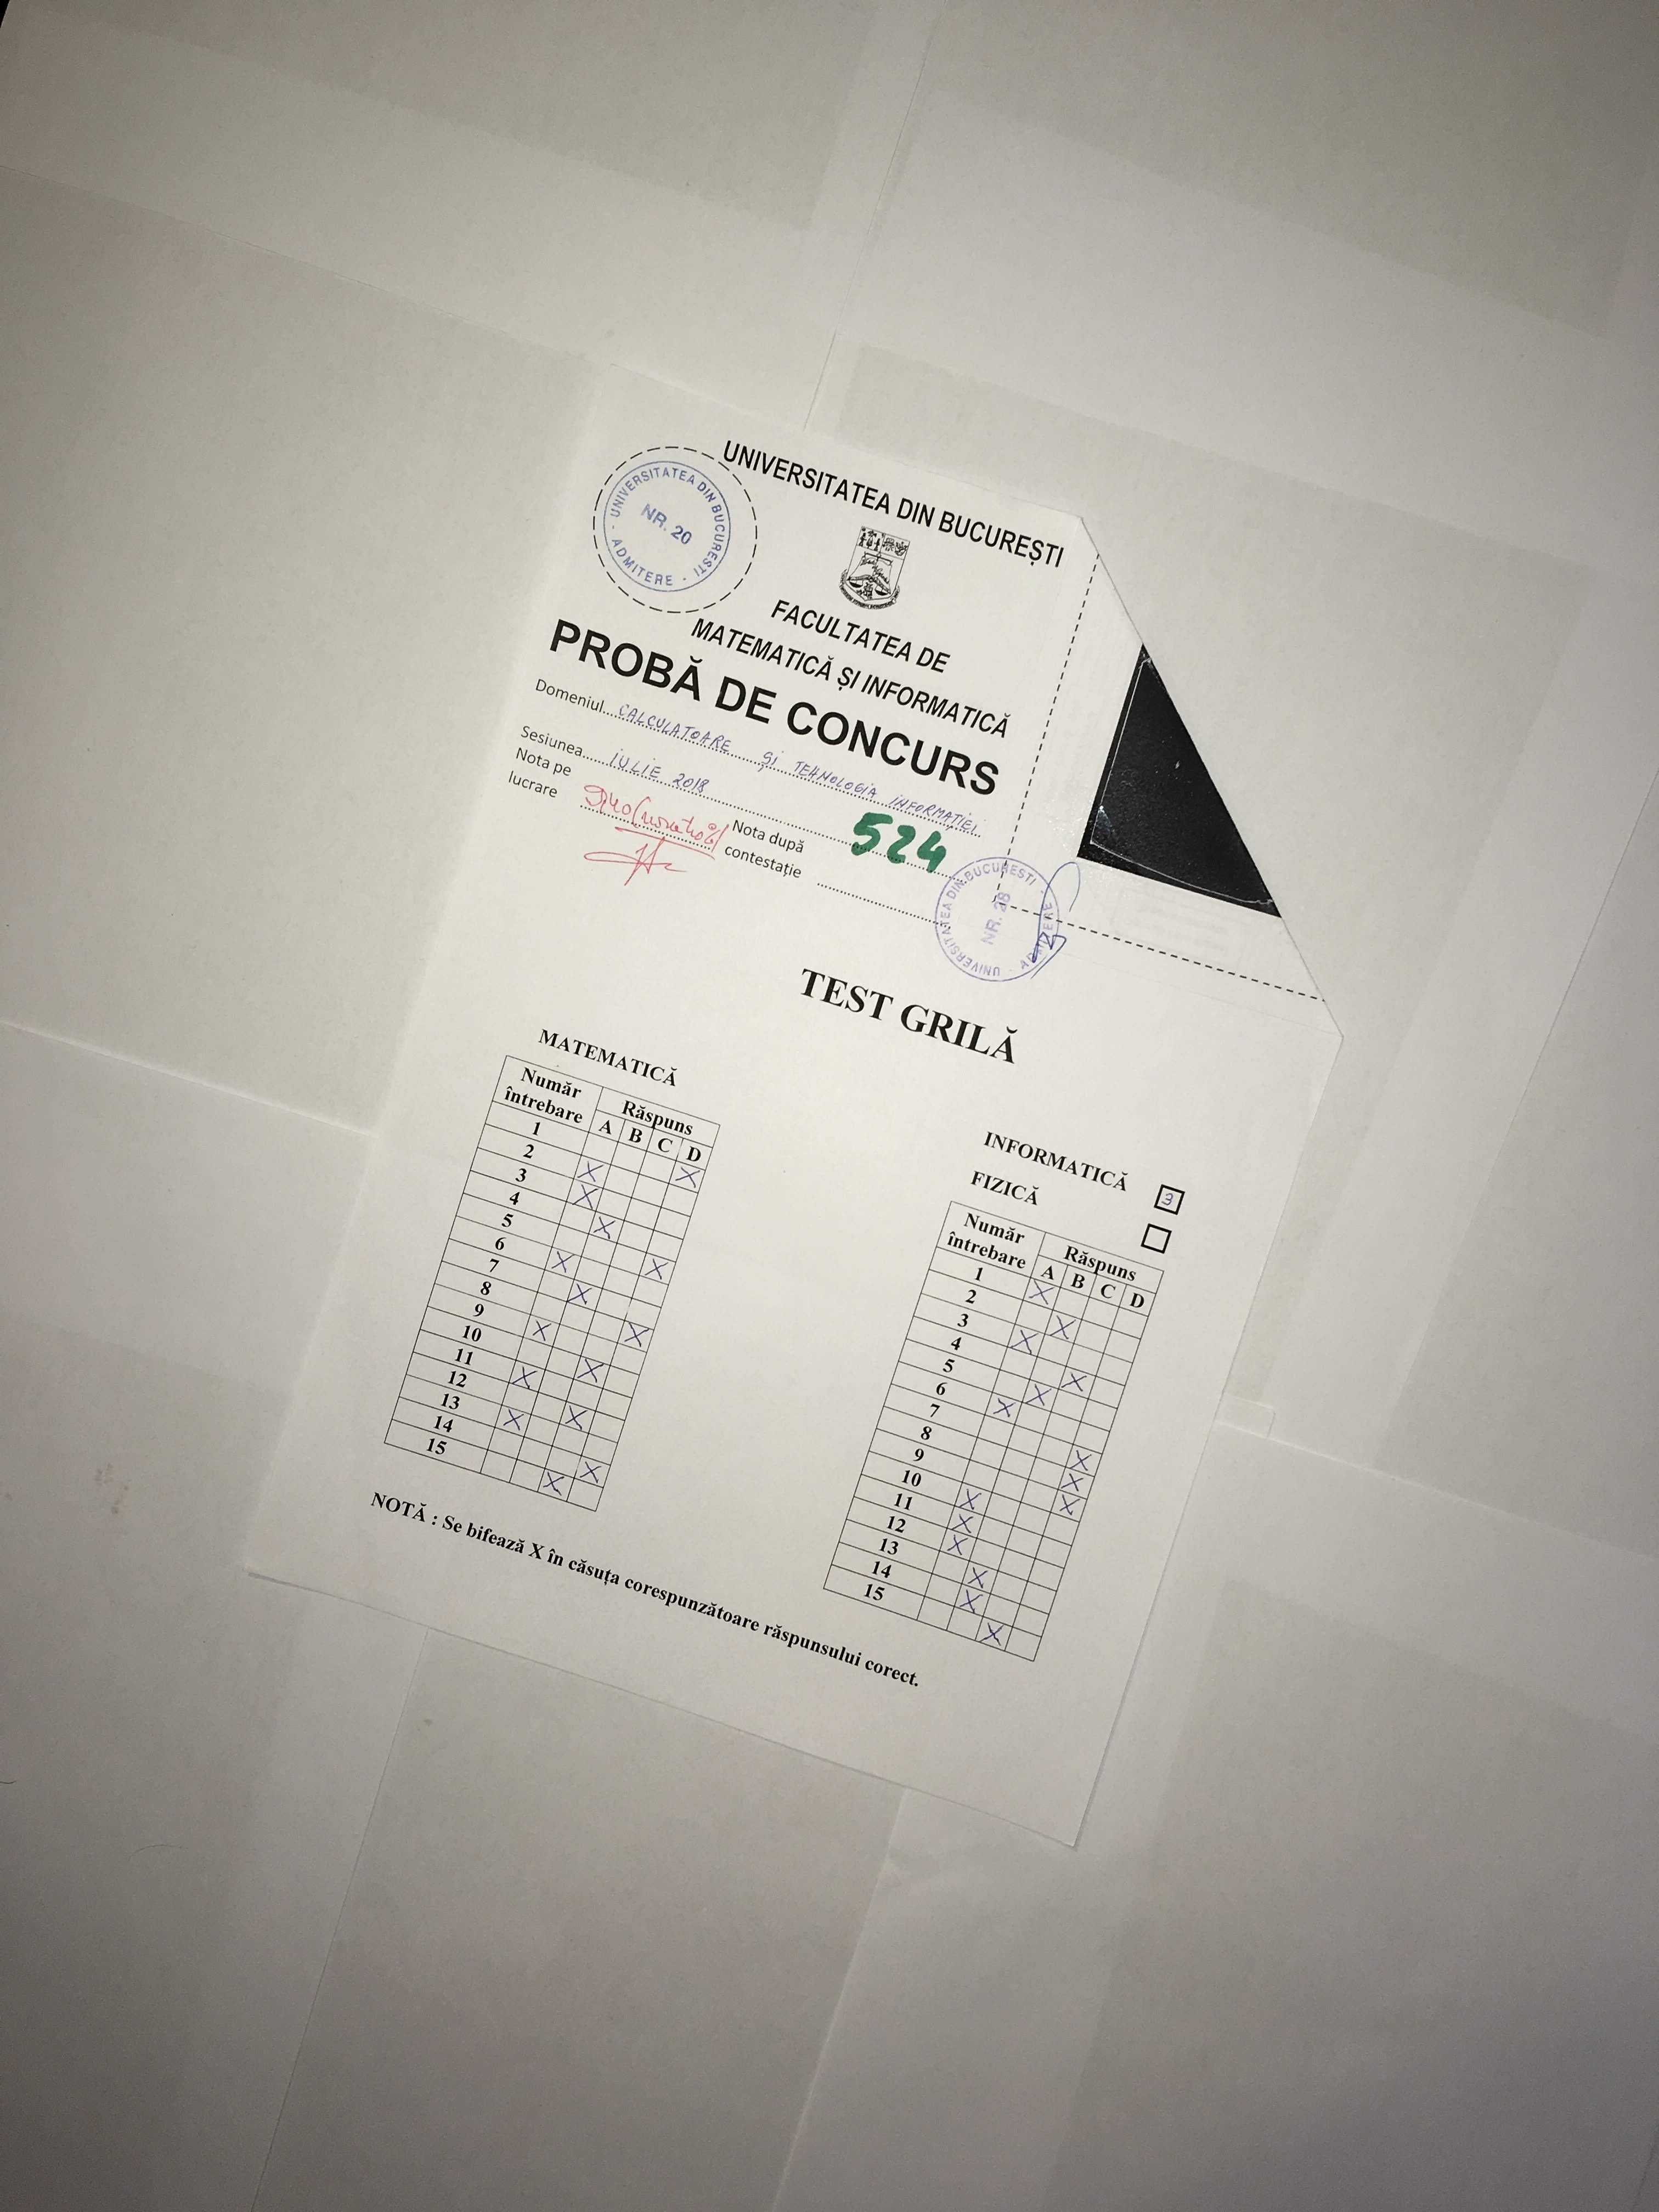 UNIVERSITATEA DIN BUCUREȘTI
UNIVERSITATEA DIN BUCUREȘTI · ADMITERE ·
NR. 20
FACULTATEA DE
MATEMATICĂ ȘI INFORMATICĂ
PROBĂ DE CONCURS
Domeniul...CALCULATOARE ȘI TEHNOLOGIA INFORMAȚIEI
Sesiunea...IULIE 2018
Nota pe lucrare 9,40
Nota după contestație
524
UNIVERSITATEA DIN BUCUREȘTI · ADMITERE ·
NR. 28
TEST GRILĂ
MATEMATICĂ
Număr întrebare Răspuns
A B C D
1 X
2 X
3 X
4 X
5 X
6 X
7 X
8 X
9 X
10 X
11 X
12 X
13 X
14 X
15 X
INFORMATICĂ 3
FIZICĂ
Număr întrebare Răspuns
A B C D
1 X
2 X
3 X
4 X
5 X
6 X
7 X
8 X
9 X
10 X
11 X
12 X
13 X
14 X
15 X
NOTĂ : Se bifează X în căsuța corespunzătoare răspunsului corect.